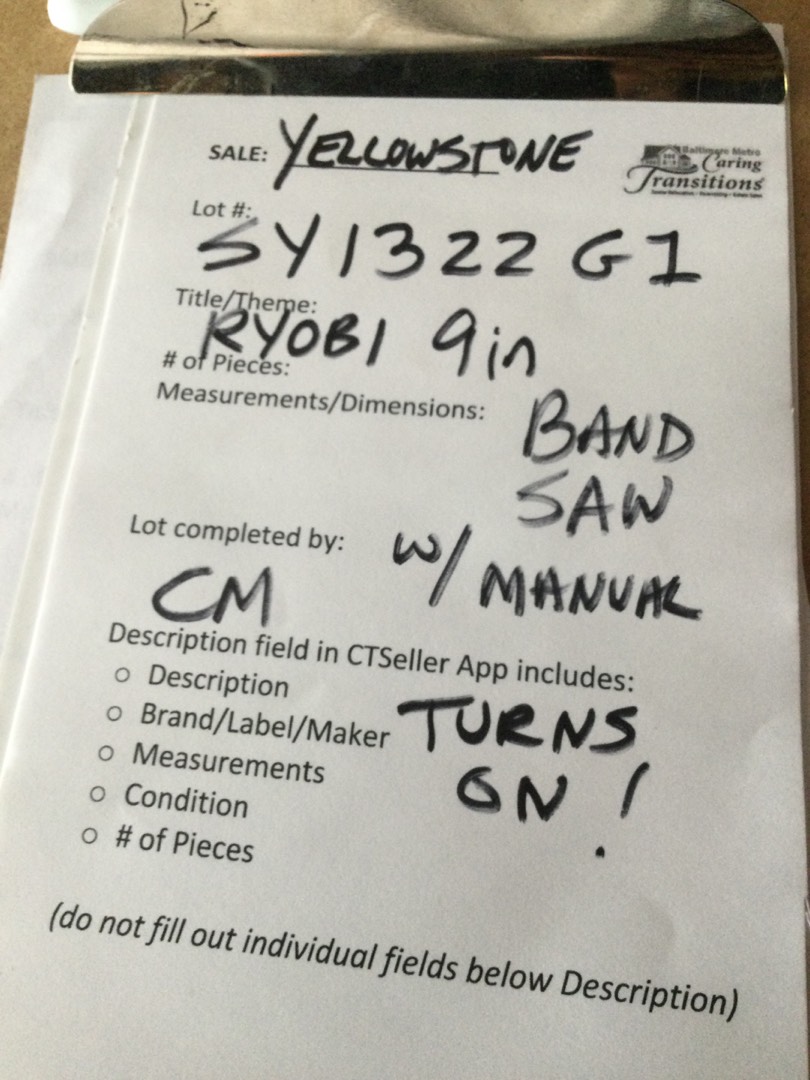 SALE: YELLOWSTONE
Baltimore Metro
Caring
Transitions
Lot #:
SY1322 G1
Title/Theme:
RYOBI 9in
# of Pieces:
Measurements/Dimensions:
BAND
SAW
Lot completed by:
W/ MANUAL
CM
Description field in CTSeller App includes:
○ Description
○ Brand/Label/Maker
TURNS
○ Measurements
ON!
○ Condition
○ # of Pieces
(do not fill out individual fields below Description)